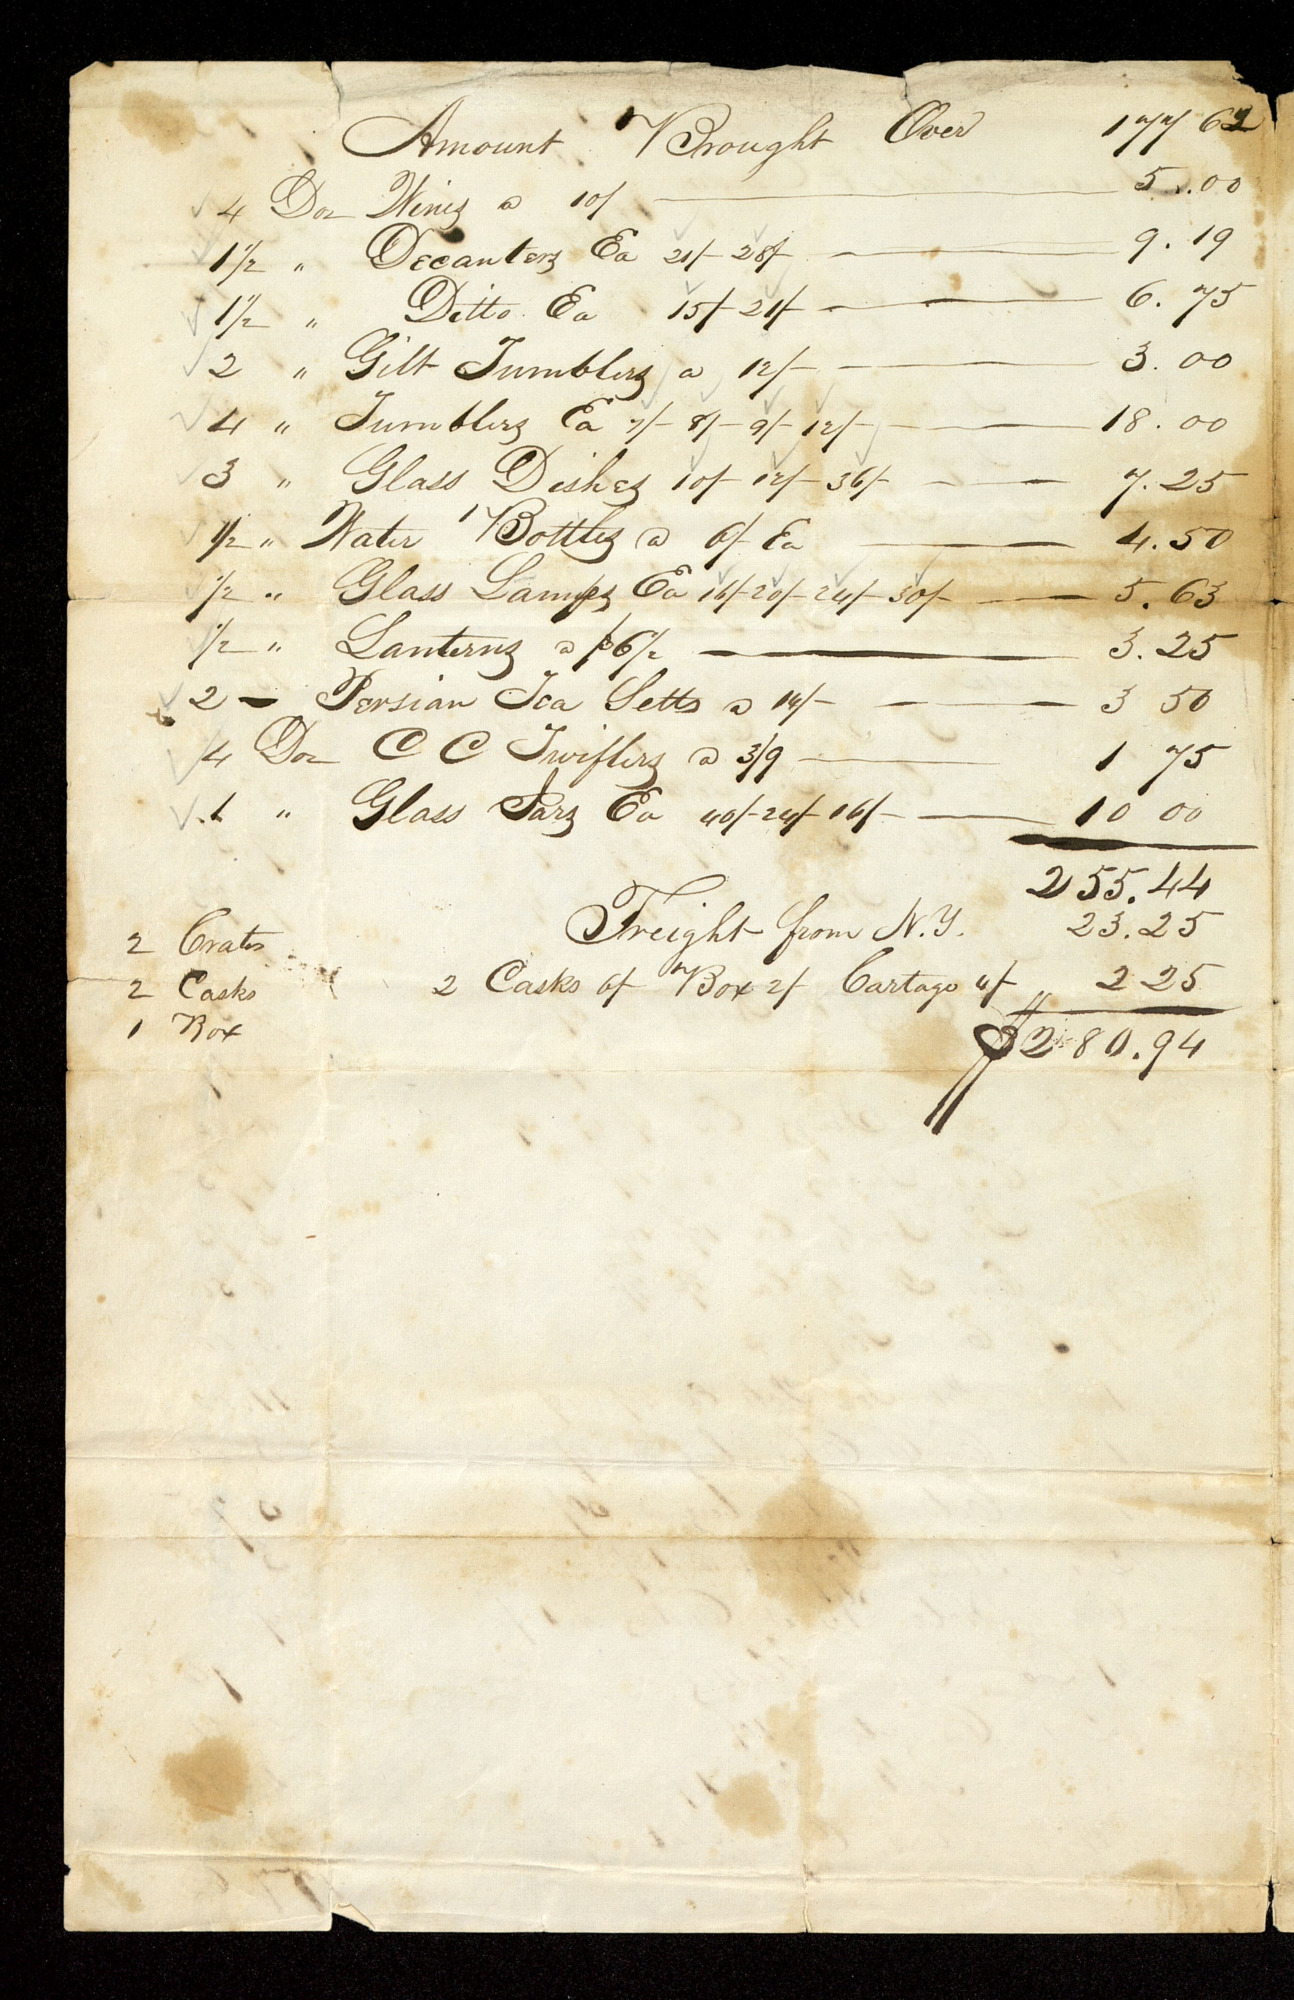 Amount Brought Over 177 62
4 Doz Wines a 10/ 5.00
1 1/2 " Decanters Ea 21/- 28/- 9.19
1 1/2 " Ditto Ea 15/- 21/- 6.75
2 " Gilt Tumblers a 12/- 3.00
4 " Tumblers Ea 7/- 8/- 9/- 12/- 18.00
3 " Glass Dishes 10/- 12/- 36/- 7.25
1/2 " Water Bottles a 6/- Ea 4.50
1/2 " Glass Lamps Ea 16/- 20/- 24/- 30/- 5.63
1/2 " Lanterns a $6 1/2 3.25
2 - Persian Tea Setts a 14/- 3 50
4 Doz C C Twiflers a 3/9 1 75
1 " Glass Jars Ea 40/- 24/- 16/- 10 00
255.44
Freight from N.Y. 23.25
2 Crates
2 Casks 2 Casks 6/ Box 2/ Cartage 4/- 2 25
1 Box
$280.94